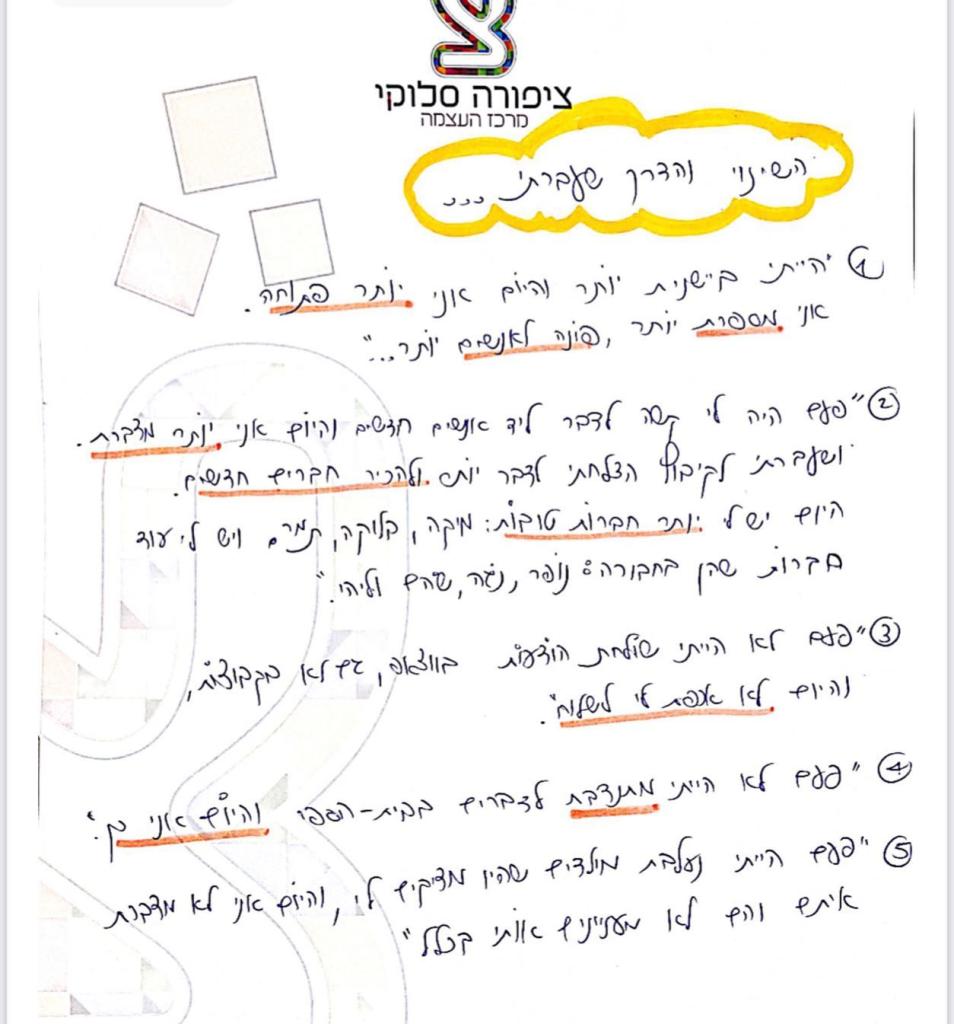 ציפורה סלוקי
מרכז העצמה
השינוי והדרך שעברתי...
① "הייתי ביישנית יותר והיום אני יותר פתוחה.
אני מספרת יותר, פונה לאנשים יותר..."
② "פעם היה לי קשה לדבר ליד אנשים חדשים והיום אני יותר מדברת.
ושעברתי לקיבוץ הצלחתי לדבר יותר ולהכיר חברים חדשים.
היום יש לי יותר חברות טובות: מיקה, תמר ויש לי עוד
חברות שהן בחבורה: נופר, נגה, שהם וליהי."
③ "פעם לא הייתי שולחת הודעות בווצאפ, גם לא בקבוצות,
והיום לא אכפת לי לשלוח".
④ "פעם לא הייתי מתנדבת לדברים בבית-הספר והיום אני כן."
⑤ "פעם הייתי נעלבת מילדים שהיו מציקים לי, והיום אני לא מדברת
איתם והם לא מעניינים אותי בכלל"